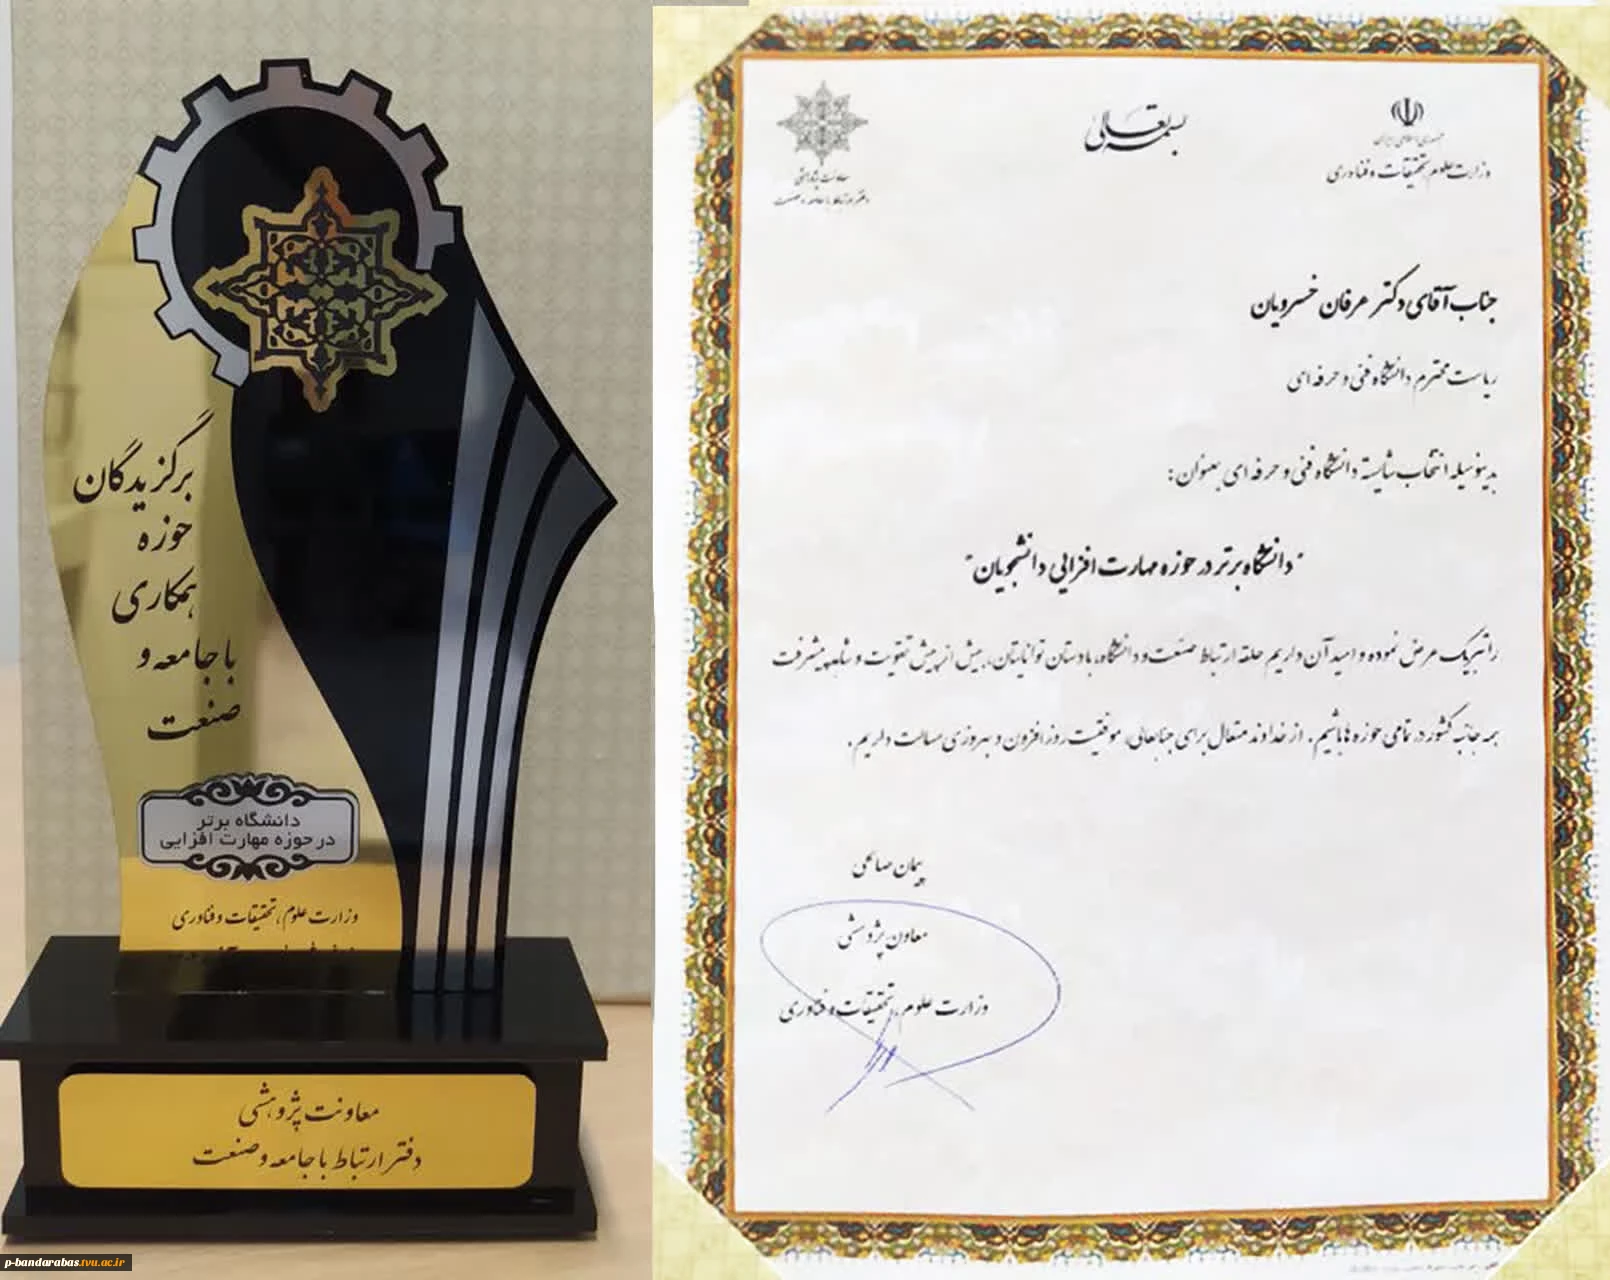 برگزیدگان
حوزه
همکاری
با جامعه و
صنعت
دانشگاه برتر
در حوزه مهارت افزایی
وزارت علوم، تحقیقات و فناوری
معاونت پژوهشی
دفتر ارتباط با جامعه و صنعت
p-bandarabas.tvu.ac.ir
بسمه تعالی
جمهوری اسلامی ایران
وزارت علوم، تحقیقات و فناوری
معاونت پژوهشی
دفتر ارتباط با جامعه و صنعت
جناب آقای دکتر عرفان خسرویان
ریاست محترم دانشگاه فنی و حرفه ای
بدینوسیله انتخاب شایسته دانشگاه فنی و حرفه ای بعنوان:
"دانشگاه برتر در حوزه مهارت افزایی دانشجویان"
را تبریک عرض نموده و امید آن داریم حلقه ارتباط صنعت و دانشگاه، با دستان توانایتان، بیش از پیش تقویت و شاهد پیشرفت
همه جانبه کشور در تمامی حوزه ها باشیم. از خداوند متعال برای جنابعالی، موفقیت روزافزون و بهروزی مسالت داریم.
پیمان صالحی
معاون پژوهشی
وزارت علوم، تحقیقات و فناوری